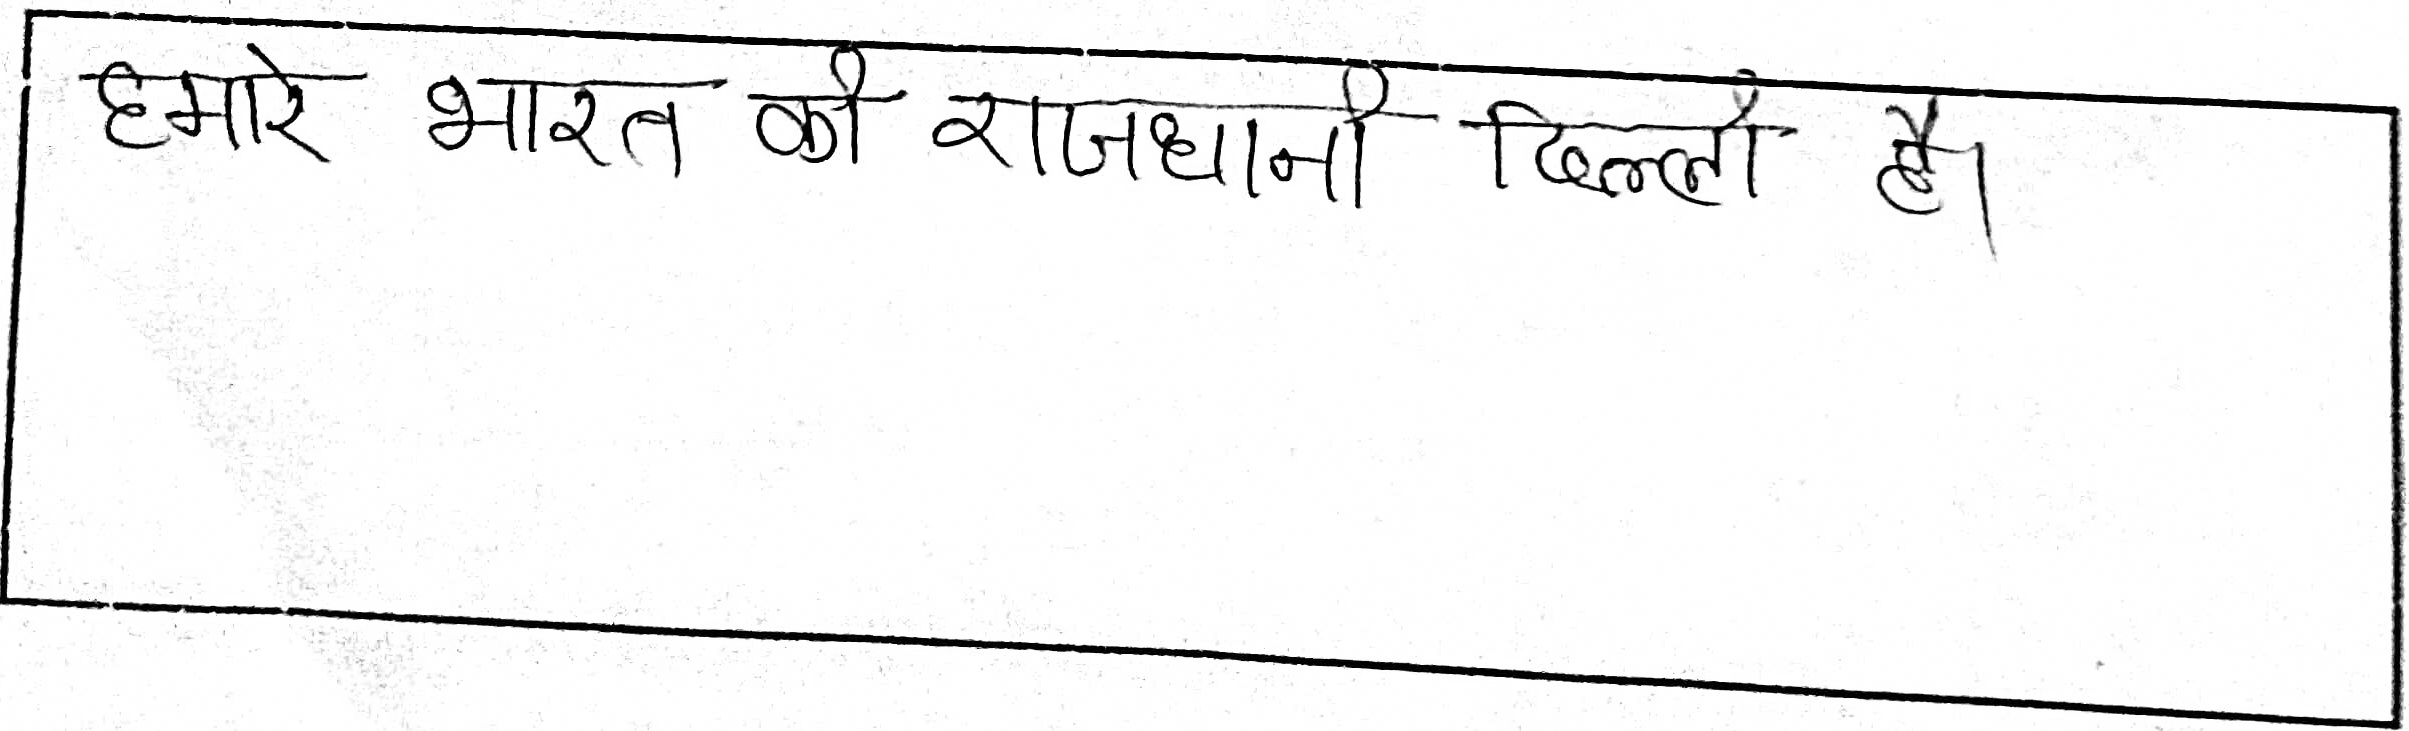 हमारे भारत की राजधानी दिल्ली है।